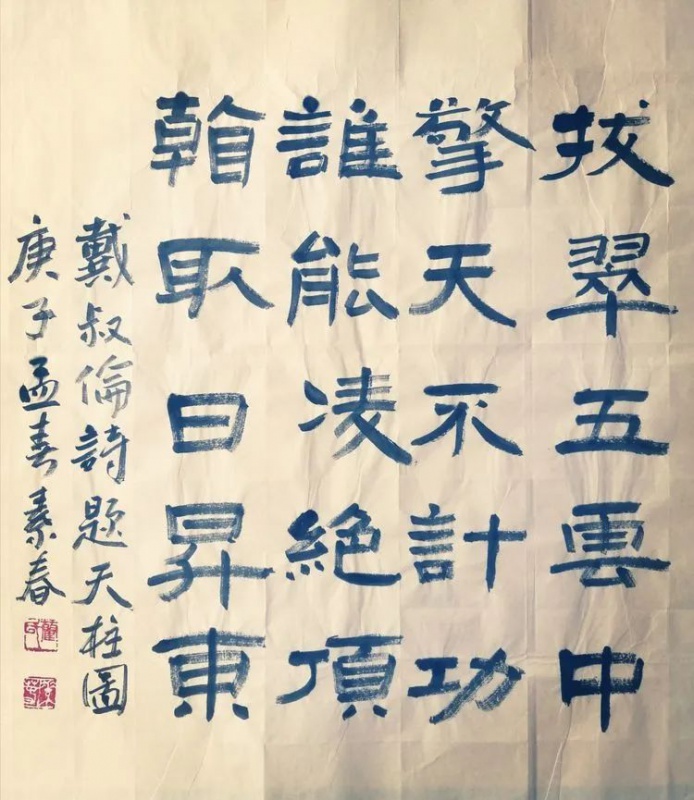 拔翠五雲中
擎天不計功
誰能凌絕頂
看取日昇東
戴叔倫詩題天柱圖
庚子孟春秦春